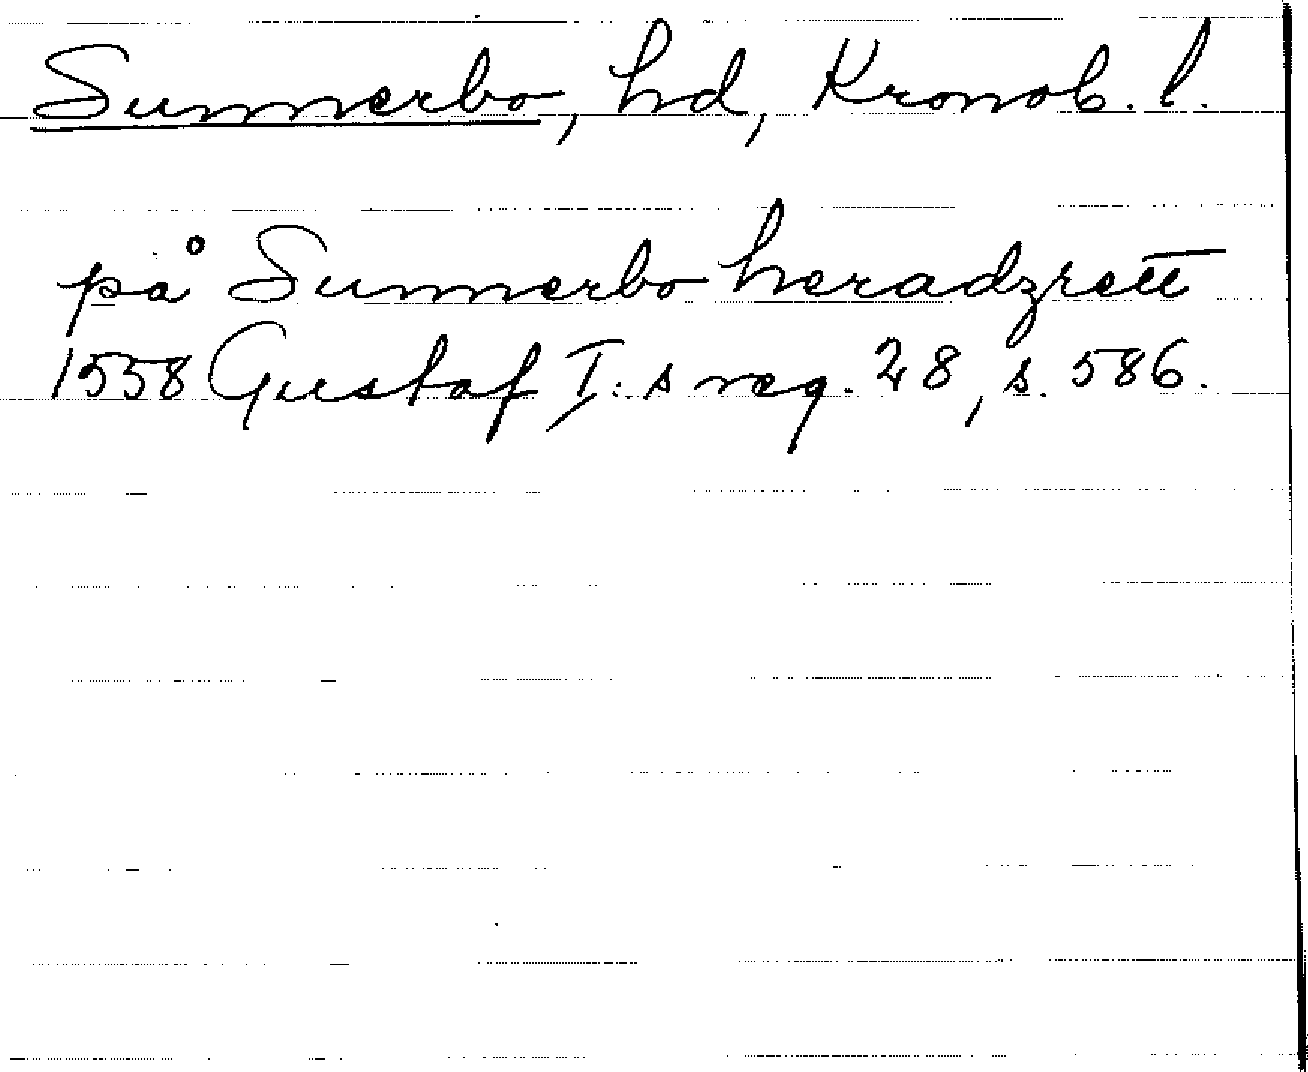 Sunnerbo, hd, Kronob. l.
på Sunnerbo heradzrett
1558 Gustaf I:s reg. 28, s. 586.